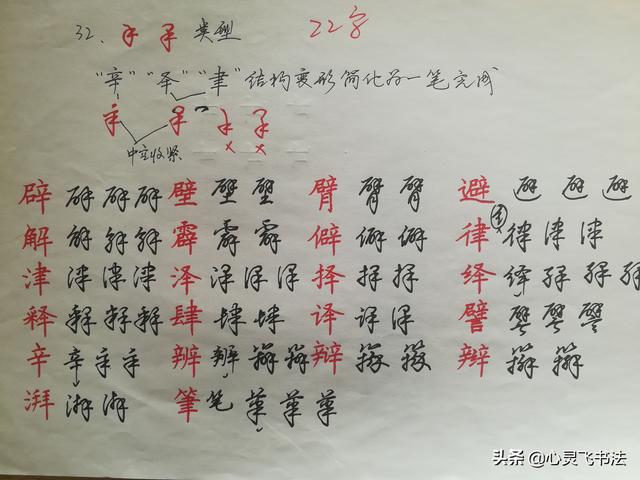 32、 类型 22字
"辛""𠬤""聿"结构变形简化为一笔完成
中宫收紧
辟 辟 辟 辟 壁 壁 壁 臂 臂 臂 避 避 避 避
解 解 解 解 霹 霹 霹 僻 僻 僻 律 律 律 律
津 津 津 津 泽 泽 泽 泽 择 择 择 绎 绎 绎 绎
释 释 释 释 肆 肆 肆 译 译 译 譬 譬 譬 譬
辛 辛 辛 辛 辨 辨 辨 辨 辩 辩 辩 辫 辫 辫
湃 湃 湃 筆 笔 筆 筆 筆
头条 @心灵飞书法